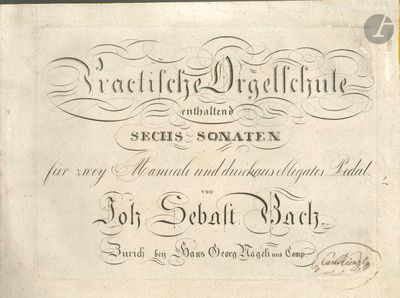 Practische Orgelschule
enthaltend
SECHS SONATEN
für zwey Manuale und durchaus obligates Pedal
von
Joh. Sebast. Bach.
Zürich bey Hans Georg Nägeli und Comp.